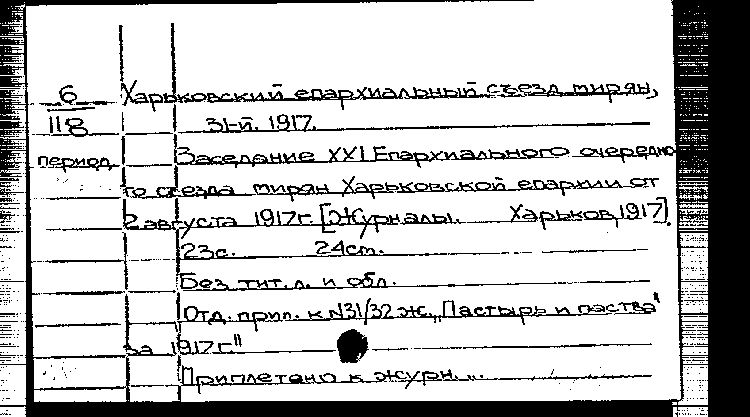 6 Харьковский епархиальный съезд мирян,
118 31-й. 1917.
период Заседание XXI Епархиального очередно-
го съезда мирян Харьковской епархии от
2 августа 1917г. [Журналы. Харьков, 1917].
23с. 24см.
Без тит. л. и обл.
Отд. прил. к N31/32 ж. „Пастырь и паства"
за 1917г."
Приплетено к журн. ...